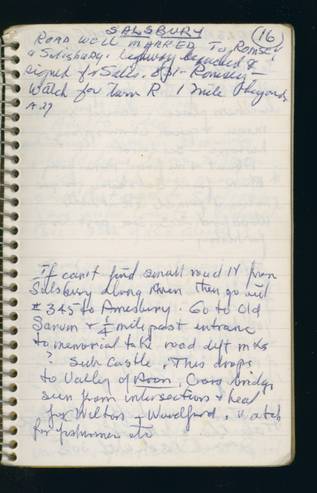 SALSBURY (16)
ROAD WELL MARKED TO ROMSEY
& Salisbury. Highway &
signed for Salis. Romsey -
Watch for turn R 1 mile beyond
A 27
If can't find small road N from
Salsbury along river then go out
# 345 to Amesbury. Go to Old
Sarum & ½ mile past entrance
to memorial take road left mks
? sub Castle. This drops
to Valley of Avon, Cross bridge
seen from intersection & head
for Wilton + Woodford. Watch
for fishermen etc